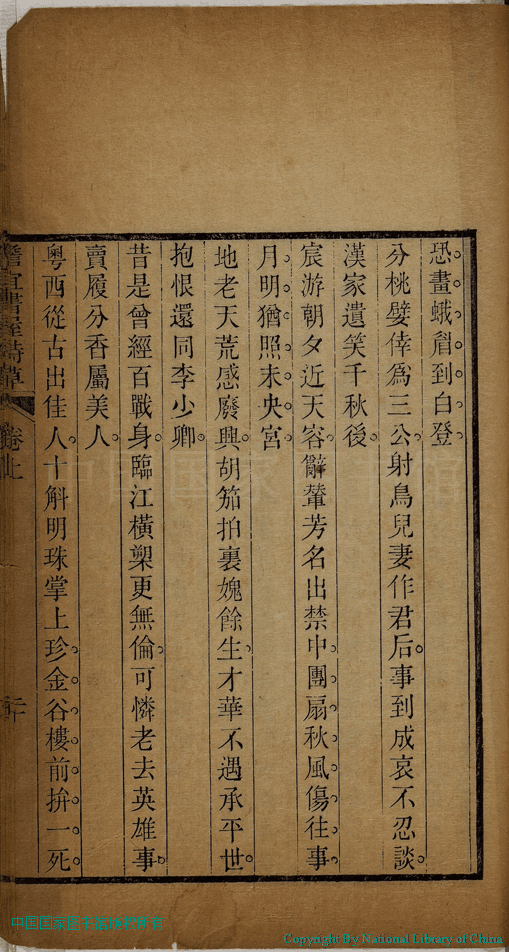 恐畫蛾眉到白登。
分桃嬖倖為三公。射鳥兒妻作君后。事到成哀不忍談。
漢家遺笑千秋後。
宸游朝夕近天容。辭輦芳名出禁中。團扇秋風傷往事。
月明猶照未央宮。
地老天荒感廢興。胡笳拍裏媿餘生。才華不遇承平世。
抱恨還同李少卿。
昔是曾經百戰身。臨江橫槊更無倫。可憐老去英雄事。
賣履分香屬美人。
粵西從古出佳人。十斛明珠掌上珍。金谷樓前拚一死。
書屋詩草
卷上
二十
中国国家图书馆
Copyright By National Library of China